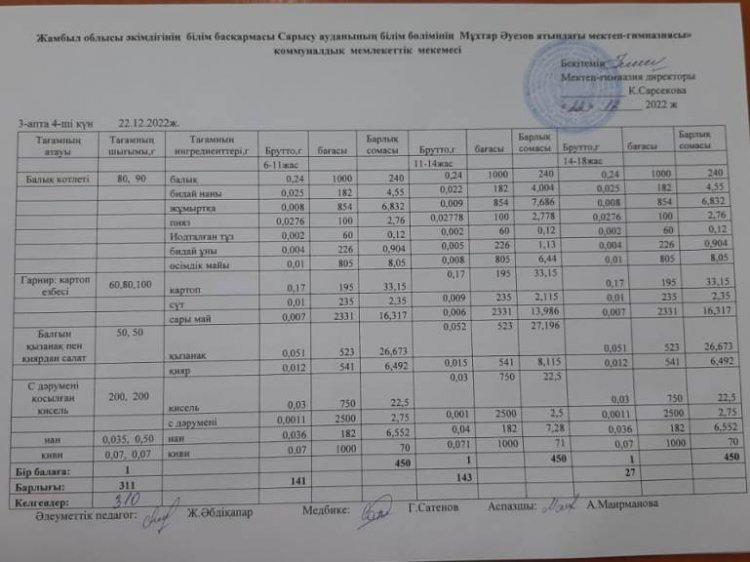 Жамбыл облысы әкімдігінің білім басқармасы Сарысу ауданының білім бөлімінің Мұхтар Әуезов атындағы мектеп-гимназиясы»
коммуналдық мемлекеттік мекемесі
Бекітемін
Мектеп-гимназия директоры
К.Сарсекова
«22» 12 2022 ж
3-апта 4-ші күн 22.12.2022ж.
Тағамның атауы Тағамның шығымы,г Тағамның ингредиенттері,г Брутто,г бағасы Барлық сомасы Брутто,г бағасы Барлық сомасы Брутто,г бағасы Барлық сомасы
6-11жас 11-14жас 14-18жас
Балық котлеті 80, 90 балық 0,24 1000 240 0,24 1000 240 0,24 1000 240
бидай наны 0,025 182 4,55 0,022 182 4,004 0,025 182 4,55
жұмыртқа 0,008 854 6,832 0,009 854 7,686 0,008 854 6,832
пияз 0,0276 100 2,76 0,02778 100 2,778 0,0276 100 2,76
Йодталған тұз 0,002 60 0,12 0,002 60 0,12 0,002 60 0,12
бидай ұны 0,004 226 0,904 0,005 226 1,13 0,004 226 0,904
өсімдік майы 0,01 805 8,05 0,008 805 6,44 0,01 805 8,05
Гарнир: картоп езбесі 60,80,100 картоп 0,17 195 33,15 0,17 195 33,15 0,17 195 33,15
сүт 0,01 235 2,35 0,009 235 2,115 0,01 235 2,35
сары май 0,007 2331 16,317 0,006 2331 13,986 0,007 2331 16,317
Балғын қызанақ пен қиярдан салат 50, 50 қызанақ 0,051 523 26,673 0,052 523 27,196 0,051 523 26,673
қияр 0,012 541 6,492 0,015 541 8,115 0,012 541 6,492
С дәрумені қосылған кисель 200, 200 кисель 0,03 750 22,5 0,03 750 22,5 0,03 750 22,5
с дәрумені 0,0011 2500 2,75 0,001 2500 2,5 0,0011 2500 2,75
нан 0,035, 0,50 нан 0,036 182 6,552 0,04 182 7,28 0,036 182 6,552
киви 0,07, 0,07 киви 0,07 1000 70 0,071 1000 71 0,07 1000 70
Бір балаға: 1 450 1 450 1 450
Барлығы: 311 141 143 27
Келгендер: 310
Әлеуметтік педагог: Ж.Әбдіқапар Медбике: Г.Сатенов Аспазшы: А.Маирманова